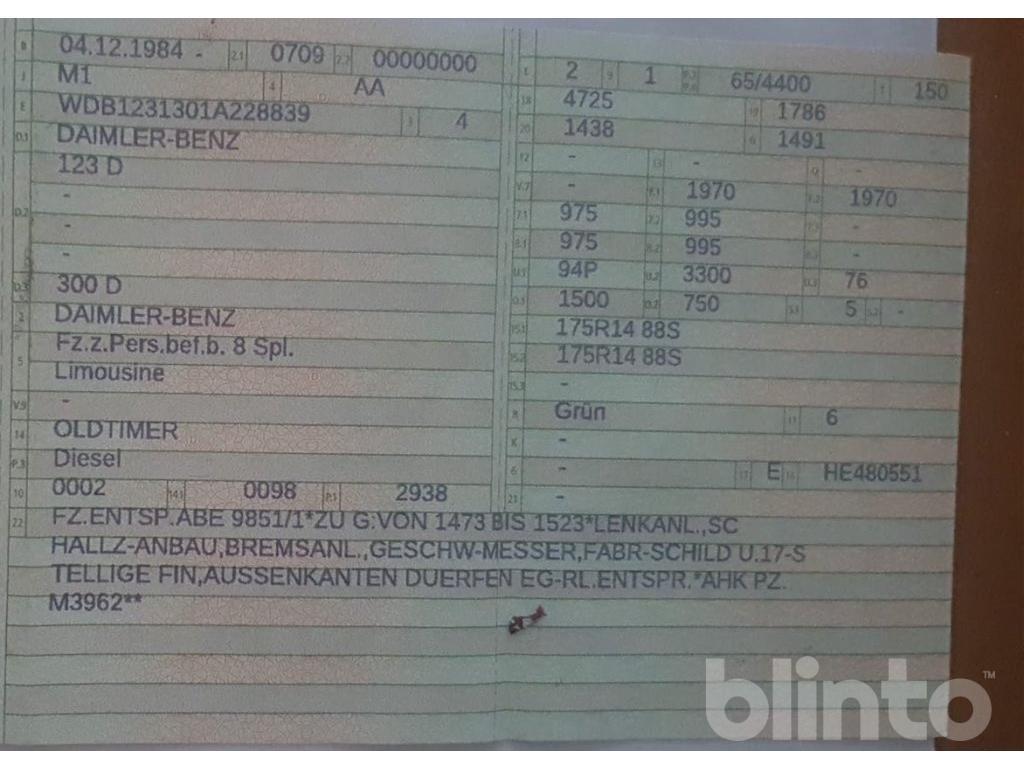 B 04.12.1984 - 2.1 0709 2.2 00000000
J M1 4 AA
E WDB1231301A228839 3 4
D.1 DAIMLER-BENZ
123 D
-
D.2 -
-
D.3 300 D
2 DAIMLER-BENZ
5 Fz.z.Pers.bef.b. 8 Spl.
Limousine
V.9 -
14 OLDTIMER
P.3 Diesel
10 0002 14.1 0098 P.1 2938
L 2 9 1 65/4400 T 150
18 4725 19 1786
20 1438 G 1491
12 - 13 - Q -
V.7 - F.1 1970 F.2 1970
7.1 975 7.2 995 7.3 -
8.1 975 8.2 995 8.3 -
U.1 94P U.2 3300 U.3 76
O.1 1500 O.2 750 S.1 5 S.2 -
15.1 175R14 88S
15.2 175R14 88S
15.3 -
R Grün 11 6
K -
6 - 17 E 16 HE480551
21 -
22 FZ.ENTSP.ABE 9851/1*ZU G:VON 1473 BIS 1523*LENKANL.,SC
HALLZ-ANBAU,BREMSANL.,GESCHW-MESSER,FABR-SCHILD U.17-S
TELLIGE FIN,AUSSENKANTEN DUERFEN EG-RL.ENTSPR.*AHK PZ.
M3962**
blinto™